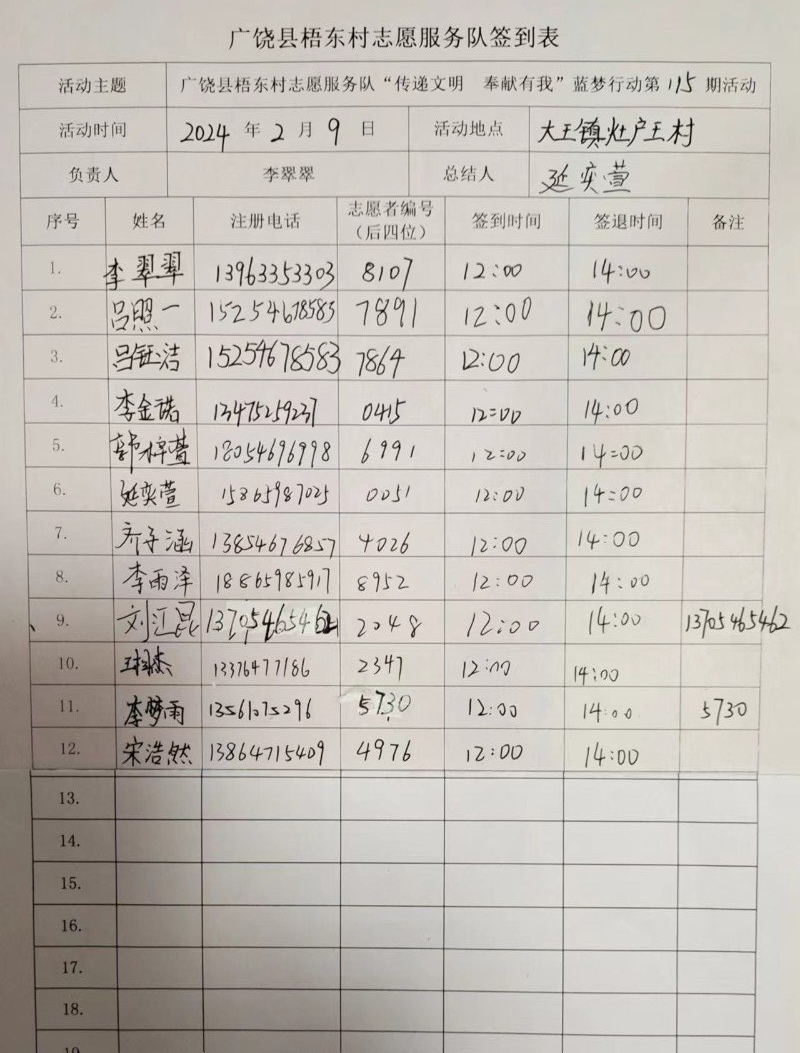 广饶县梧东村志愿服务队签到表
活动主题 广饶县梧东村志愿服务队“传递文明 奉献有我”蓝梦行动第115期活动
活动时间 2024年2月9日 活动地点 大王镇灶户王村
负责人 李翠翠 总结人 延奕萱
序号 姓名 注册电话 志愿者编号（后四位） 签到时间 签退时间 备注
1. 李翠翠 13963353303 8107 12:00 14:00
2. 吕照一 15254678583 7891 12:00 14:00
3. 吕钰洁 15254678583 7864 12:00 14:00
4. 李金诺 13475259237 0415 12:00 14:00
5. 郭梓萱 18054696998 6991 12:00 14:00
6. 延奕萱 15865987025 0051 12:00 14:00
7. 齐子涵 13854676857 4026 12:00 14:00
8. 李雨泽 18865985917 8952 12:00 14:00
9. 刘江昆 13705465462 2048 12:00 14:00 13705465462
10. 13376477186 2347 12:00 14:00
11. 李梦雨 13561075296 5730 12:00 14:00 5730
12. 宋浩然 13864715409 4976 12:00 14:00
13.
14.
15.
16.
17.
18.
19